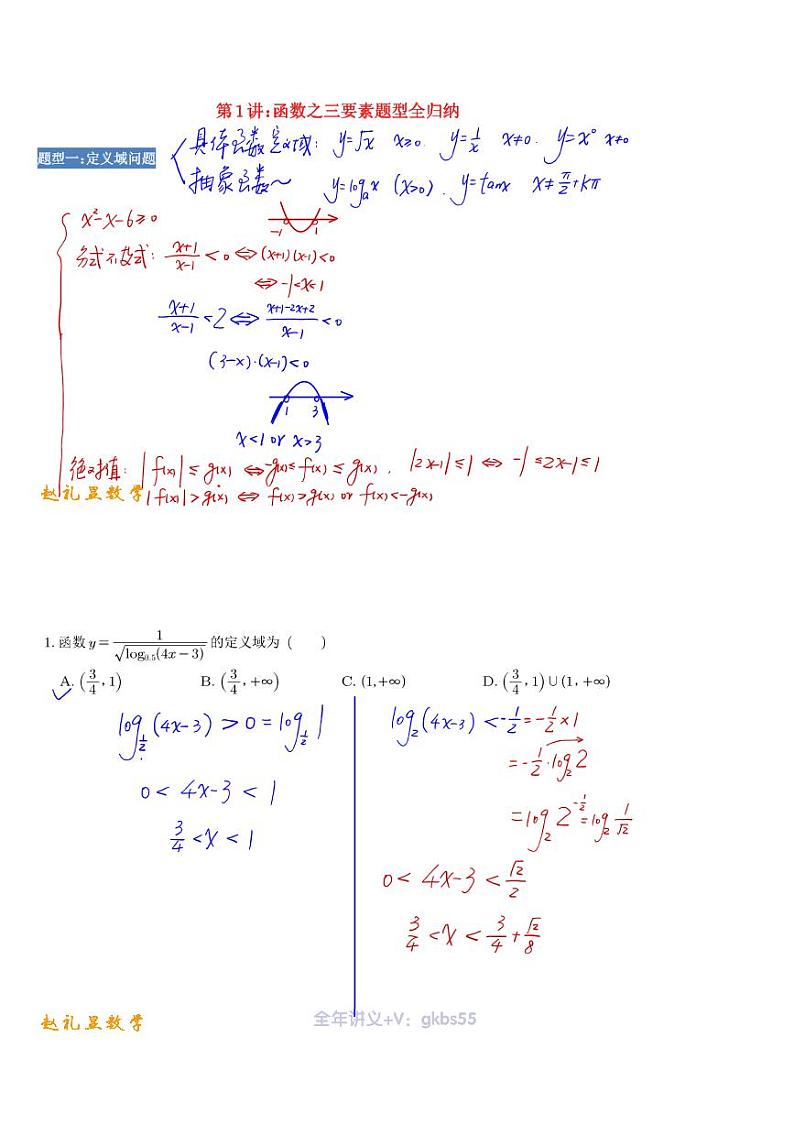 第1讲:函数之三要素题型全归纳
题型一:定义域问题
具体函数定义域: y=√x x≥0. y=1/x x≠0. y=x⁰ x≠0
抽象函数~ y=logₐx (x>0). y=tanx x≠π/2+kπ
x²-x-6≥0
-1 1
分式不等式: (x+1)/(x-1)<0 ⇔ (x+1)(x-1)<0
⇔ -1<x<1
(x+1)/(x-1)<2 ⇔ (x+1-2x+2)/(x-1)<0
(3-x)·(x-1)<0
1 3
x<1 or x>3
绝对值: |f(x)|≤g(x) ⇔ -g(x)≤f(x)≤g(x). |2x-1|≤1 ⇔ -1≤2x-1≤1
赵礼显数学
|f(x)|>g(x) ⇔ f(x)>g(x) or f(x)<-g(x)
1. 函数 y=1/√(log₀.₅(4x-3)) 的定义域为 ( )
A. (3/4, 1) B. (3/4, +∞) C. (1, +∞) D. (3/4, 1)∪(1, +∞)
log_{1/2}(4x-3)>0=log_{1/2}1
0<4x-3<1
3/4<x<1
log₂(4x-3)<-1/2=-1/2×1
=-1/2·log₂2
=log₂2^{-1/2}=log₂1/√2
0<4x-3<√2/2
3/4<x<3/4+√2/8
赵礼显数学
全年讲义+V: gkbs55